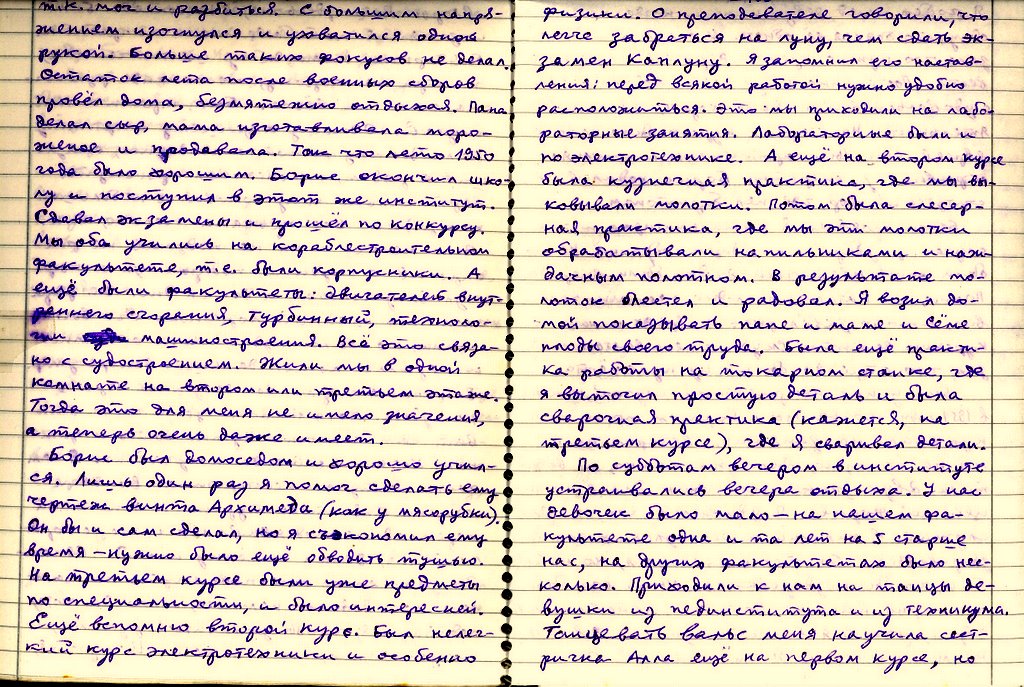 т.к. мог и разбиться. С большим напря-
жением изогнулся и ухватился одной
рукой. Больше таких фокусов не делал.
Остаток лета после военных сборов
провёл дома, безмятежно отдыхая. Папа
делал сыр, мама изготавливала моро-
женое и продавала. Так что лето 1950
года было хорошим. Борис окончил шко-
лу и поступил в этот же институт.
Сдавал экзамены и прошёл по конкурсу.
Мы оба учились на кораблестроительном
факультете, т.е. были корпусники. А
ещё были факультеты: двигателей внут-
реннего сгорания, турбинный, техноло-
гии машиностроения. Всё это связа-
но с судостроением. Жили мы в одной
комнате на втором или третьем этаже.
Тогда это для меня не имело значения,
а теперь очень даже имеет.
Борис был домоседом и хорошо учил-
ся. Лишь один раз я помог сделать ему
чертёж винта Архимеда (как у мясорубки).
Он бы и сам сделал, но я съэкономил ему
время – нужно было ещё обводить тушью.
На третьем курсе были уже предметы
по специальности, и было интересней.
Ещё вспомню второй курс. Был нелёг-
кий курс электротехники и особенно
физики. О преподавателе говорили, что
легче забраться на луну, чем сдать эк-
замен Каплуну. Я запомнил его настав-
ления: перед всякой работой нужно удобно
расположиться. Это мы приходили на лабо-
раторные занятия. Лабораторные были и
по электротехнике. А ещё на втором курсе
была кузнечная практика, где мы вы-
ковывали молотки. Потом была слесар-
ная практика, где мы эти молотки
обрабатывали напильниками и наж-
дачным полотном. В результате мо-
лоток блестел и радовал. Я возил до-
мой показывать папе и маме и Сёме
плоды своего труда. Была ещё практи-
ка работы на токарном станке, где
я выточил простую деталь и была
сварочная практика (кажется, на
третьем курсе), где я сваривал детали.
По субботам вечером в институте
устраивались вечера отдыха. У нас
девочек было мало – на нашем фа-
культете одна и та лет на 5 старше
нас, на других факультетах было нес-
колько. Приходили к нам на танцы де-
вушки из пединститута и из техникума.
Танцевать вальс меня научила сест-
ричка Алла ещё на первом курсе, но